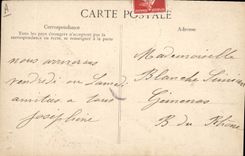 A
CARTE POSTALE
Correspondance
Tous les pays étrangers n'acceptent pas la
correspondance au recto, se renseigner à la poste
Adresse
nous arriverons
vendredi ou Samedi
amitiés à tous
Joséphine
Mademoiselle
Blanche
Gémenos
B du Rhône